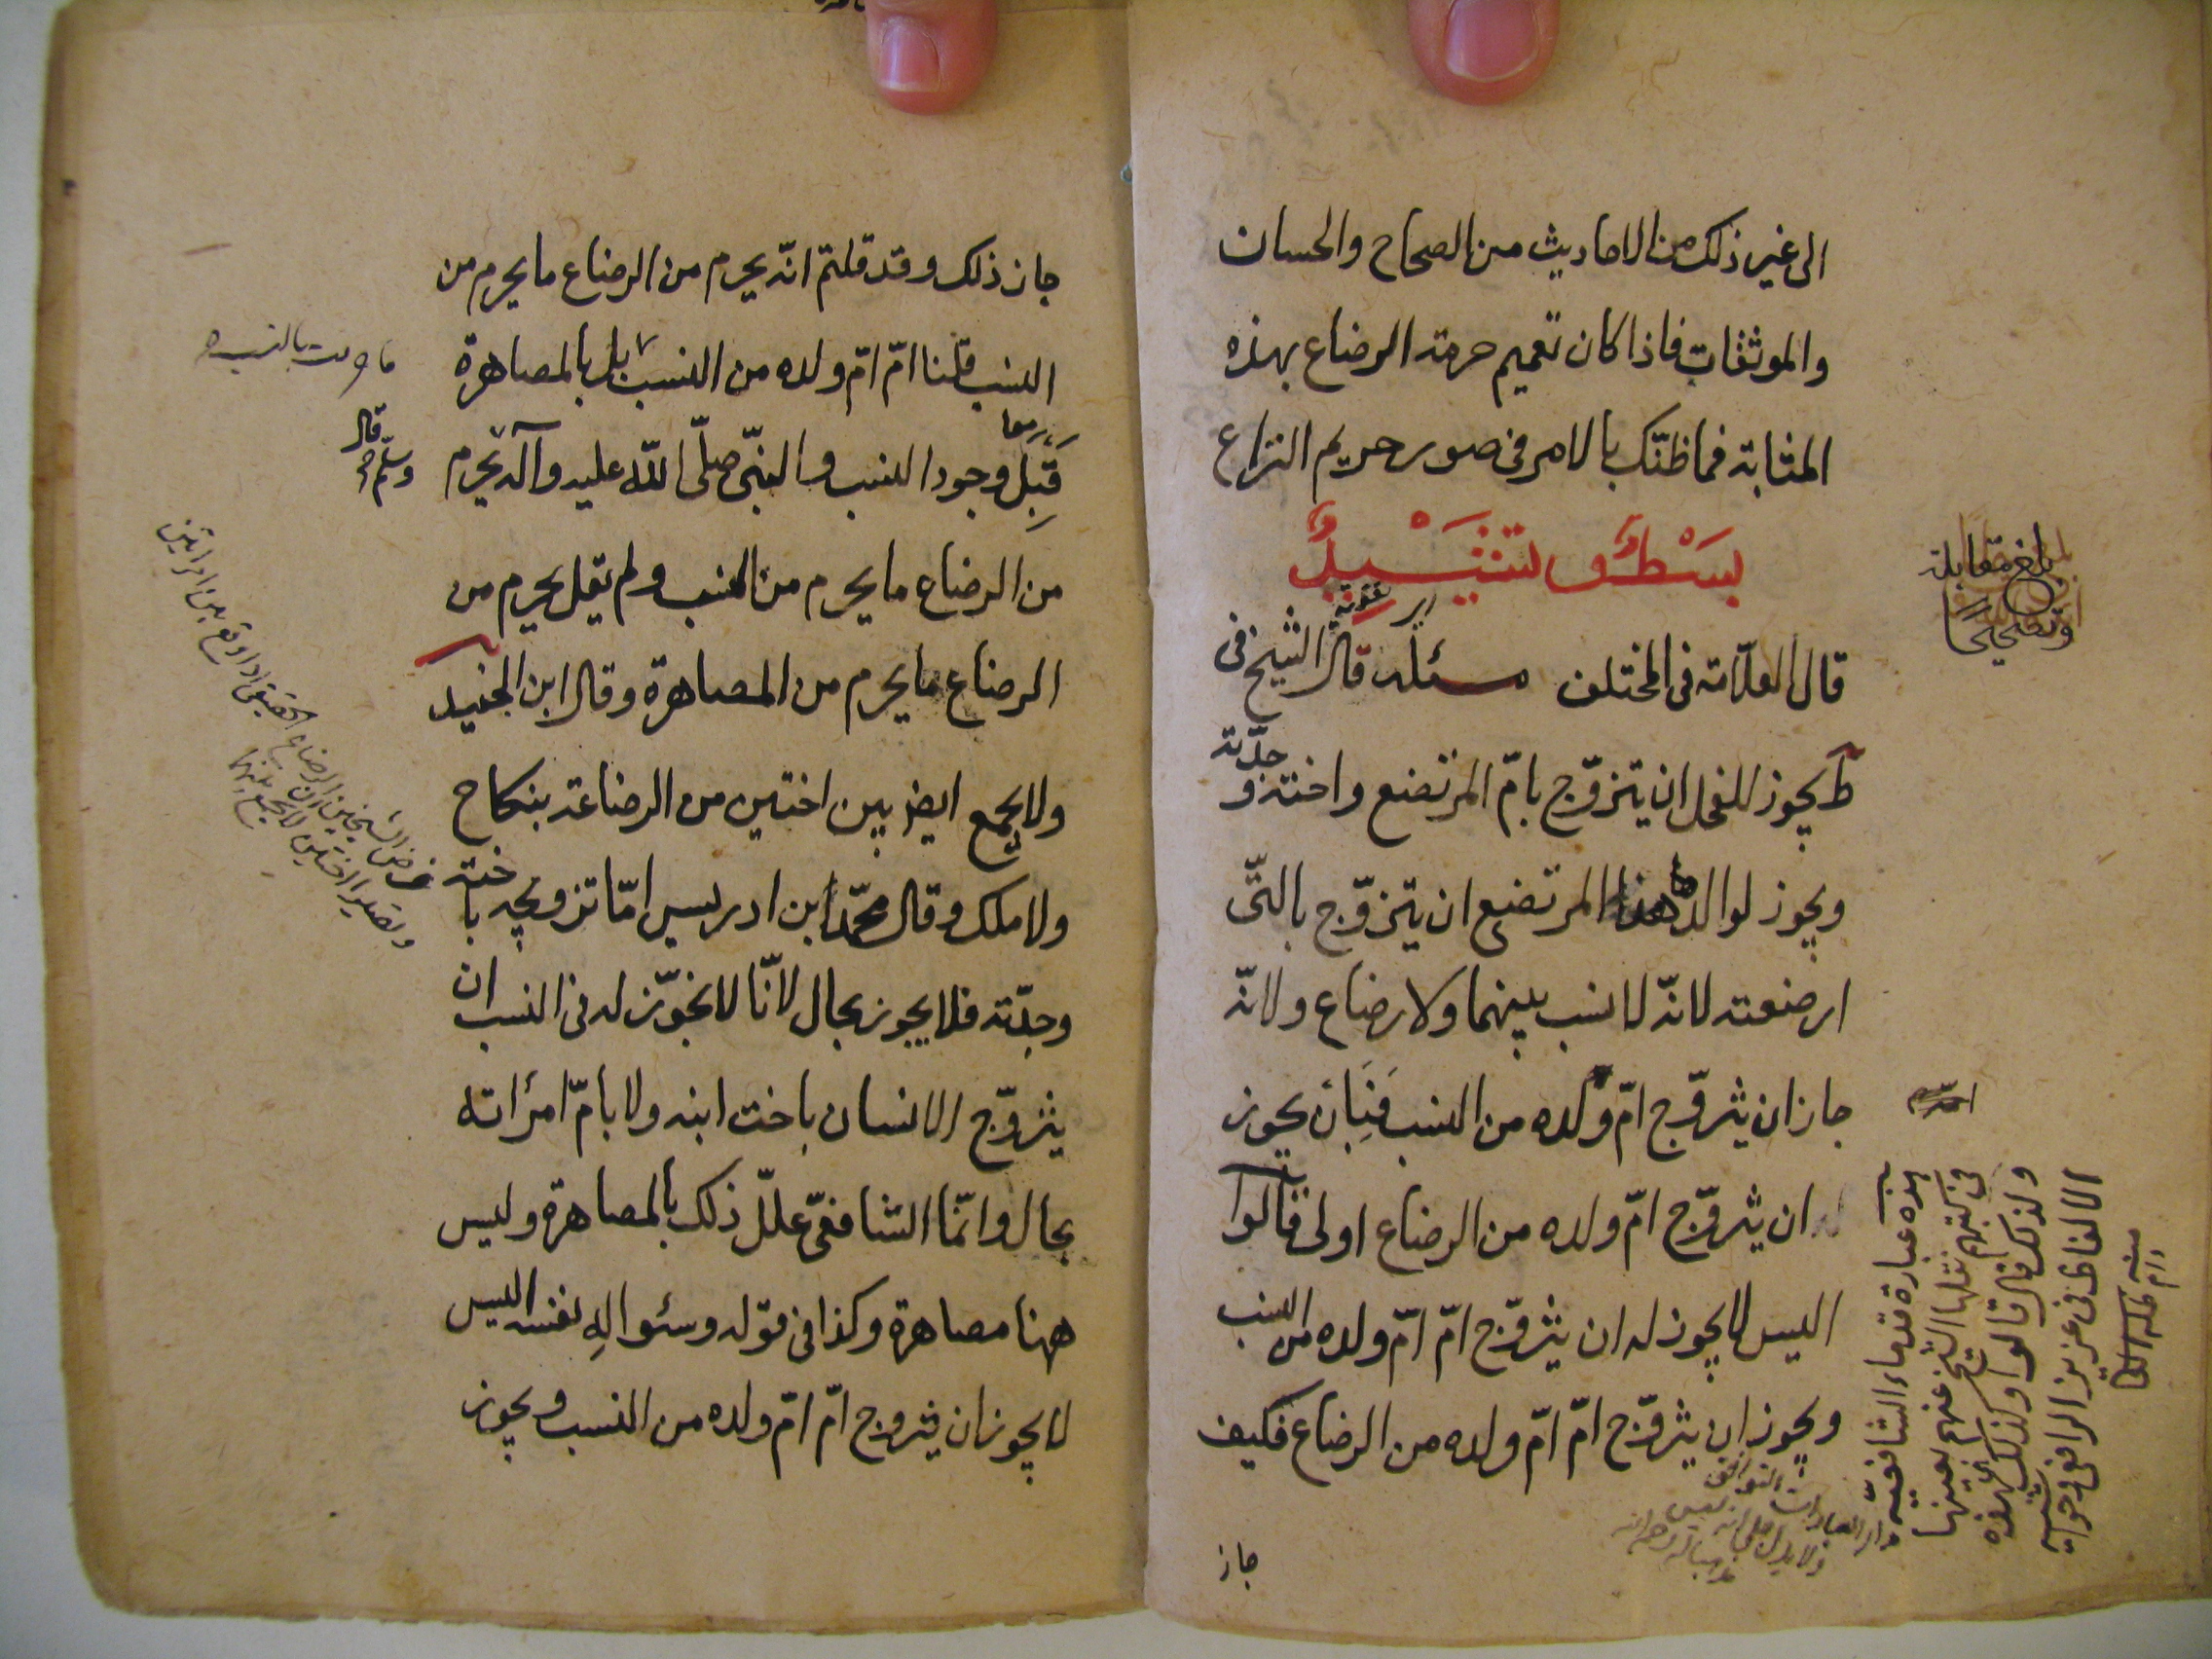 الى غير ذلك من الاحاديث من الصحاح والحسان
والموثقات فاذا كان تعميم حرمة الرضاع بهذه
المثابة فما ظنّك بالامر فى صور حريم النزاع
بسط وتنبيل
قال العلّامة فى المختلف مسئلة قال الشيخ فى
ط يجوز للفحل ان يتزوّج بامّ المرتضع واخته و
جدّته
ويجوز لوالد هذا المرتضع ان يتزوّج بالتّى
ارضعته لانّه لا نسب بينهما ولا رضاع ولانّه
جاز ان يتزوّج امّ ولده من النسب فبِاَن يجوز
ان يتزوّج امّ ولده من الرضاع اولى قالوا
اليس لا يجوز له ان يتزوّج امّ امّ ولده من النسب
ويجوز ان يتزوّج امّ امّ ولده من الرضاع فكيف
جاز
بلغ مقابلة
وتصحيحًا
هذه عبارة قدماء الشافعيّة
فى كتبهم نقلها الشيخ عنهم بعينها
ولذلك قال قالوا وكذلك هذه
الالفاظ فى عزيز الرافعى وحواشيه
جاز ذلك وقد قلتم انّه يحرم من الرضاع ما يحرم من
النسب قلنا امّ امّ ولده من النسب بل بالمصاهرة
ما حرمت بالنسب
قبل وجود النسب والنبىّ صلّى اللّه عليه وآله يحرم
وسلّم قال
من الرضاع ما يحرم من النسب ولم يقل يحرم من
الرضاع ما يحرم من المصاهرة وقال ابن الجنيد
ولا يجمع ايض بين اختين من الرضاعة بنكاح
ولا ملك وقال محمّد ابن ادريس امّا تزويجه باخته
وجدّته فلا يجوز بحال لانّا لا نجوّز له فى النسب ان
يتزوّج الانسان باخت ابنه ولا بامّ امرأته
بحال وانّما الشافعىّ علّل ذلك بالمصاهرة وليس
ههنا مصاهرة وكذا فى قوله وسئواله نفسه اليس
لا يجوز ان يتزوج امّ امّ ولده من النسب ويجوز